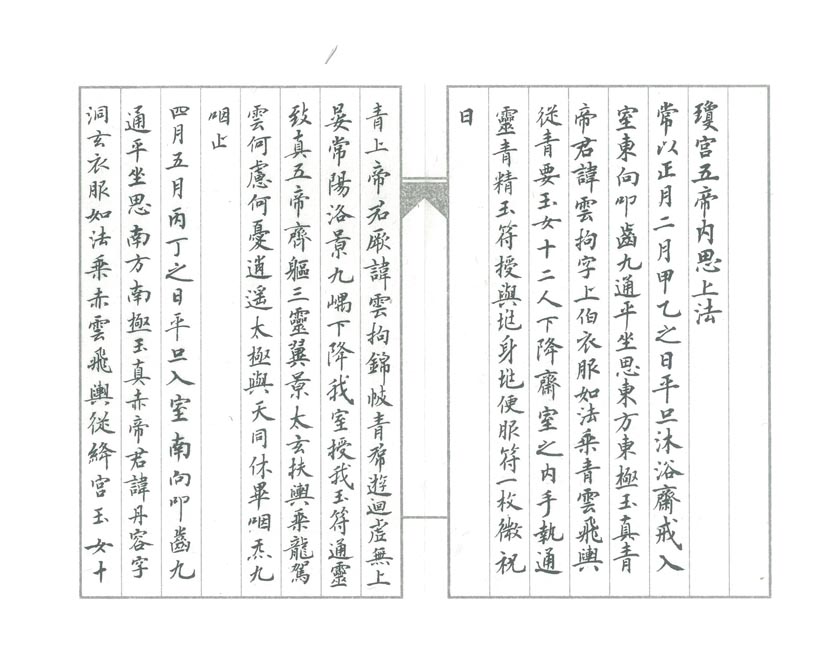 瓊宫五帝内思上法
常以正月二月甲乙之日平旦沐浴齋戒入
室東向叩齒九通平坐思東方東極玉真青
帝君諱雲拘字上伯衣服如法乘青雲飛輿
從青要玉女十二人下降齋室之内手執通
靈青精玉符授與兆身兆便服符一枚微祝
日
青上帝君厥諱雲拘錦帔青帬遊迴虛無上
晏常陽洛景九嵎下降我室授我玉符通靈
致真五帝齊軀三靈翼景太玄扶輿乘龍駕
雲何慮何憂逍遥太極與天同休畢咽炁九
咽止
四月五月丙丁之日平旦入室南向叩齒九
通平坐思南方南極玉真赤帝君諱丹容字
洞玄衣服如法乘赤雲飛輿從絳宫玉女十